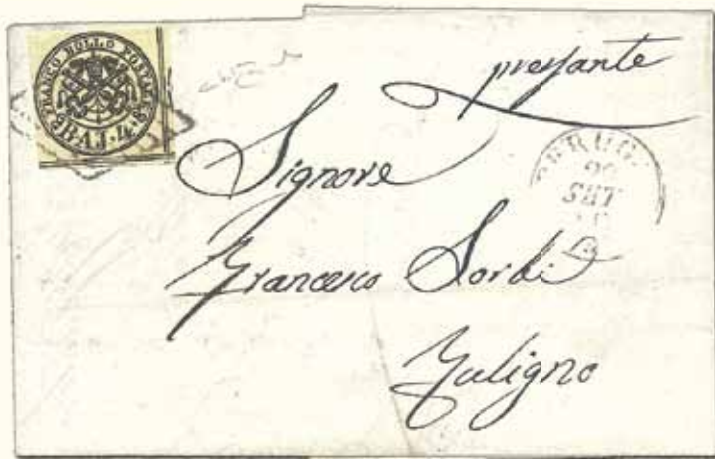 FRANCO BOLLO POSTALE
BAJ. 4.
pressante
Signore
Francesco Sordi
Fuligno
PERUG
SET